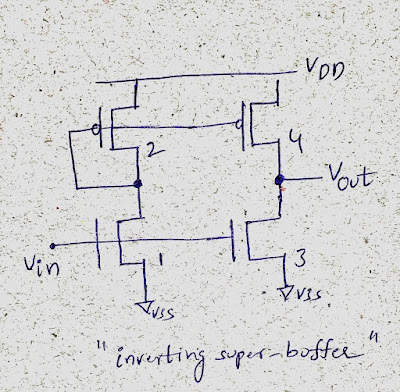 VDD
2
4
Vout
Vin
1
3
VSS
VSS.
"inverting super-boffer"